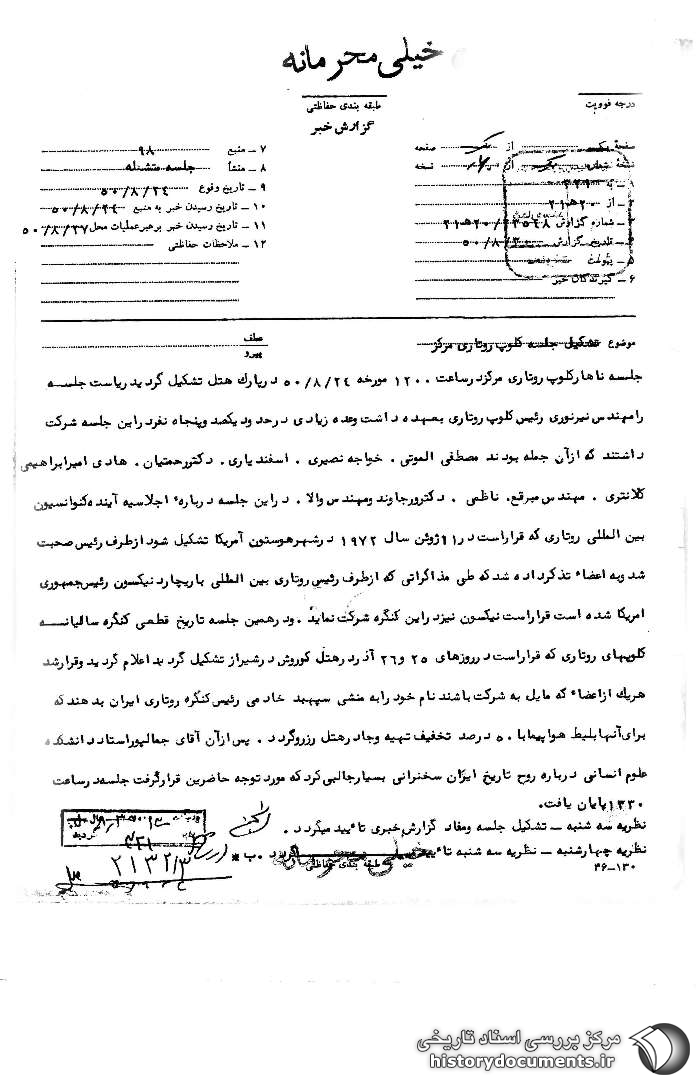 خیلی محرمانه
درجه فوریت
طبقه بندی حفاظتی
گزارش خبر
صفحه یک از یک صفحه
نسخه شماره یک از نسخه
۱ ـ به ۳۲۲
۲ ـ از ۲۰ ه‍ ۲۱
۳ ـ شماره گزارش
۴ ـ تاریخ گزارش
۵ ـ پیوست
۶ ـ گیرندگان خبر
۷ ـ منبع ۹۸
۸ ـ منشأ جلسه متشنله
۹ ـ تاریخ وقوع ۵۰/۸/۲۴
۱۰ ـ تاریخ رسیدن خبر به منبع ۵۰/۸/۲۴
۱۱ ـ تاریخ رسیدن خبر برهبر عملیات محل ۵۰/۸/۲۷
۱۲ ـ ملاحظات حفاظتی
موضوع تشکیل جلسه کلوپ روتاری مرکز
عطف
پیرو
جلسه ناهار کلوپ روتاری مرکز در ساعت ۱۲۰۰ مورخه ۵۰/۸/۲۴ در پارك هتل تشکیل گردید ریاست جلسه
را مهندس نیرنوری رئیس کلوپ روتاری بعهده داشت وعده زیادی در حدود یکصد وپنجاه نفر در این جلسه شرکت
داشتند که از آن جمله بودند مصطفی الموتی . خواجه نصیری . اسفندیاری . دکتر رحمتیان . هادی امیرابراهیمی
کلانتری . مهندس میرقع . ناظمی . دکتر ورجاوند ومهندس والا . در این جلسه درباره اجلاسیه آینده کنوانسیون
بین المللی روتاری که قرار است در ۱۱ ژوئن سال ۱۹۷۲ در شهر هوستون آمریکا تشکیل شود از طرف رئیس صحبت
شد وبه اعضاء تذکر داده شد که طی مذاکراتی که از طرف رئیس روتاری بین المللی با ریچارد نیکسون رئیس جمهوری
امریکا شده است قرار است نیکسون نیز در این کنگره شرکت نماید . ودر همین جلسه تاریخ قطعی کنگره سالیانه
کلوپهای روتاری که قرار است در روزهای ۲۵ و ۲۶ آذر در هتل کوروش در شیراز تشکیل گردد اعلام گردید وقرار شد
هریك از اعضاء که مایل به شرکت باشند نام خود را به منشی سپهبد خادمی رئیس کنگره روتاری ایران بدهند که
برای آنها بلیط هواپیما با ۵۰ درصد تخفیف تهیه وجا در هتل رزرو گردد . پس از آن آقای جمالپور استاد دانشکده
علوم انسانی درباره روح تاریخ ایران سخنرانی بسیار جالبی کرد که مورد توجه حاضرین قرار گرفت جلسه در ساعت
۱۳۳۰ پایان یافت.
نظریه سه شنبه ـ تشکیل جلسه ومفاد گزارش خبری تائید میگردد .
نظریه چهارشنبه ـ نظریه سه شنبه تائید میگردد . ب *
خیلی محرمانه
طبقه بندی حفاظتی
۳۶-۱۳۰
۲۱۳۲۱۳
مرکز بررسی اسناد تاریخی
historydocuments.ir